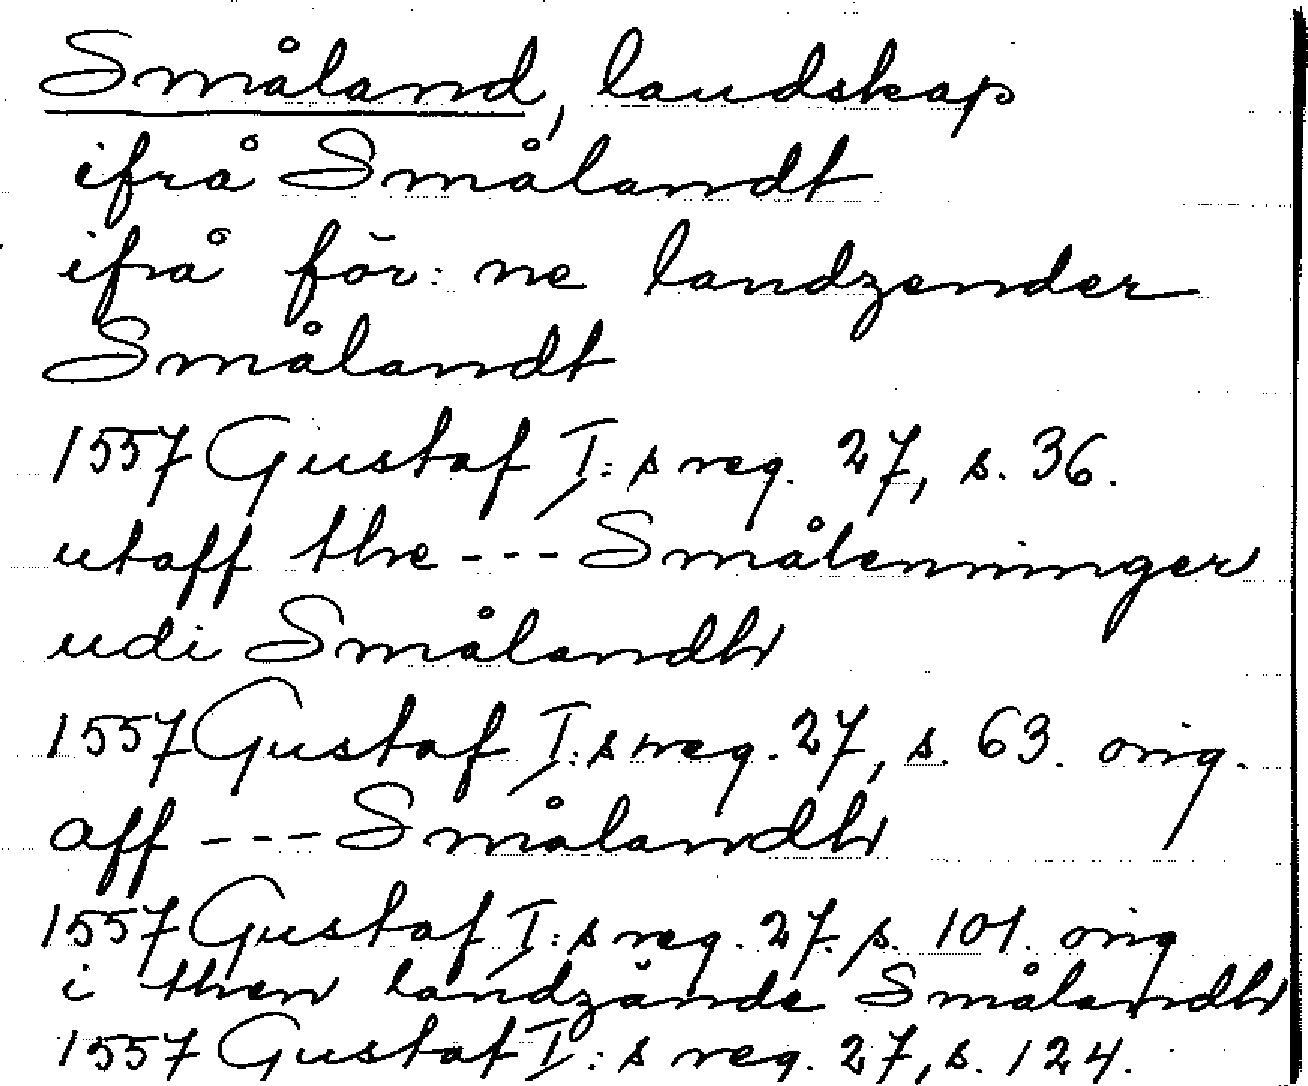 Småland, landskap
ifrå Smålandt
ifrå för: ne landzender
Smålandt
1557 Gustaf I:s reg. 27, s. 36.
utaff the --- Smålenninger
udi Smålandh
1557 Gustaf I:s reg. 27, s. 63. orig.
aff --- Smålandh
1557 Gustaf I:s reg. 27. s. 101. orig
i then landzände Smålandh
1557 Gustaf I:s reg. 27, s. 124.